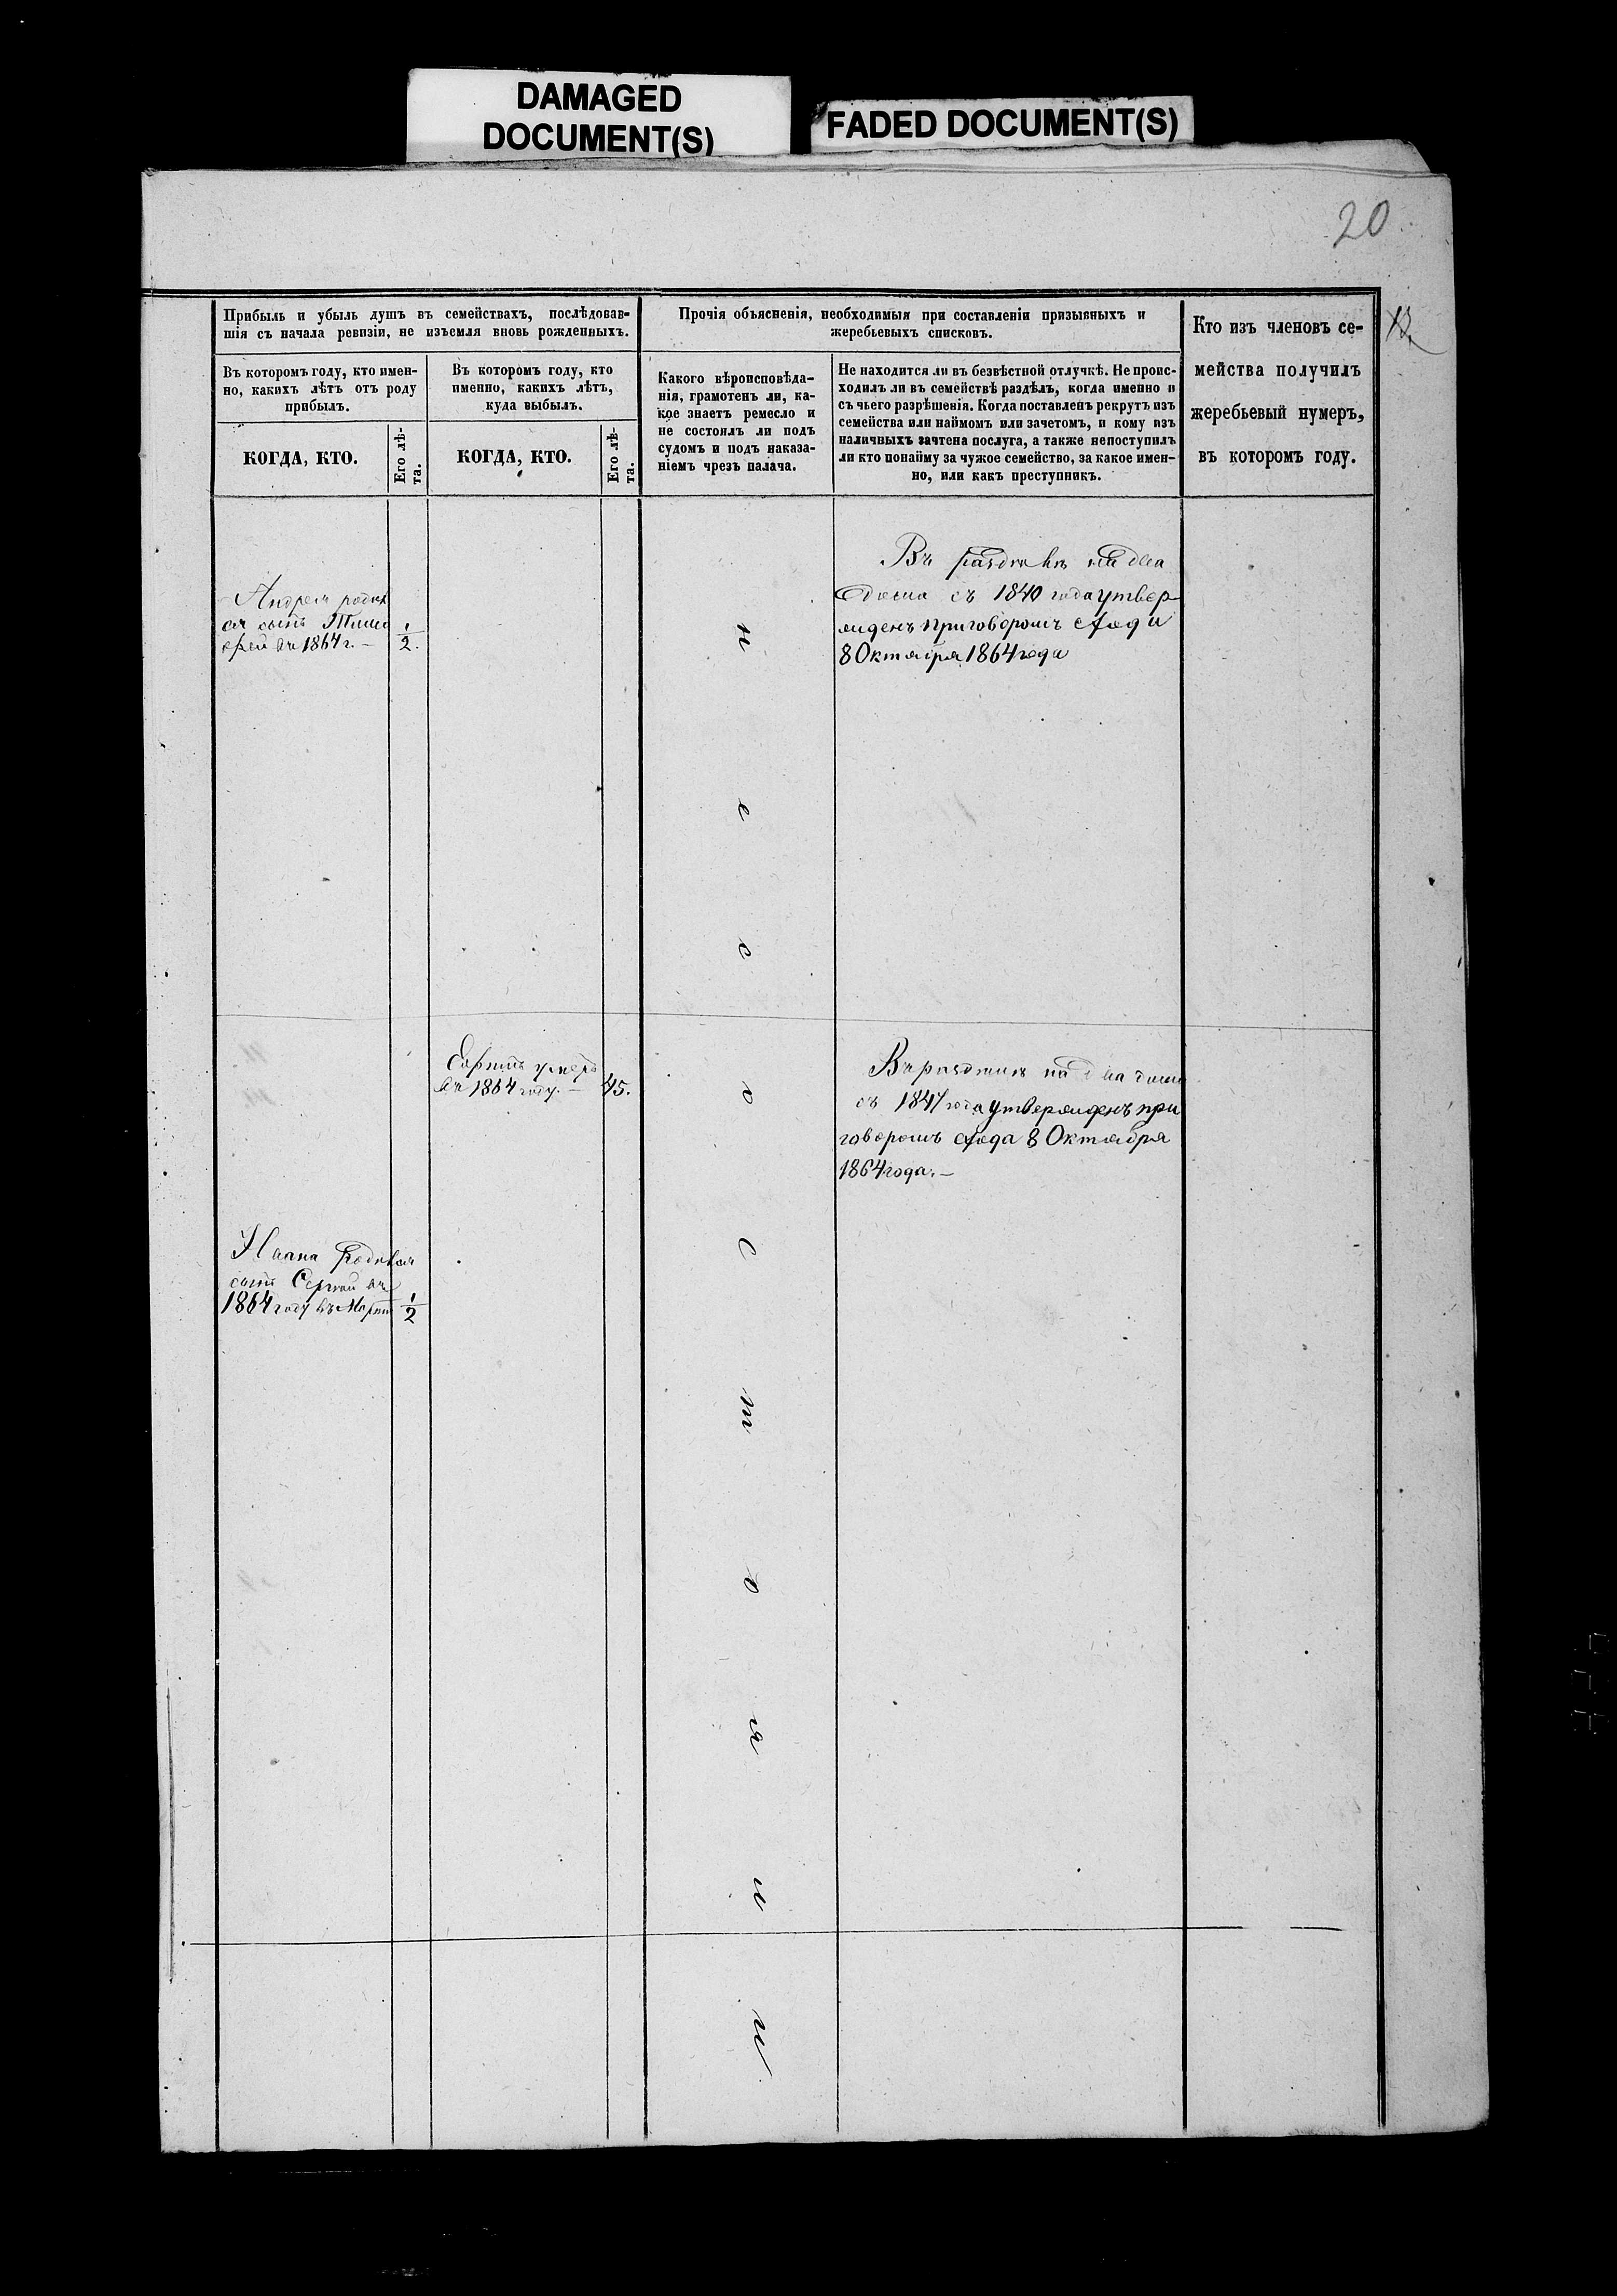 DAMAGED
DOCUMENT(S)
FADED DOCUMENT(S)
20
Прибыль и убыль душъ въ семействахъ, послѣдовав-
шія съ начала ревизіи, не изъемля вновь рожденныхъ.
Въ которомъ году, кто имен-
но, какихъ лѣтъ отъ роду
прибылъ.
КОГДА, КТО.
Его лѣ-
та.
Въ которомъ году, кто
именно, какихъ лѣтъ,
куда выбылъ.
КОГДА, КТО.
Его лѣ-
та.
Прочія объясненія, необходимыя при составленіи призывныхъ и
жеребьевыхъ списковъ.
Какого вѣроисповѣда-
нія, грамотенъ ли, ка-
кое знаетъ ремесло и
не состоялъ ли подъ
судомъ и подъ наказа-
ніемъ чрезъ палача.
Не находится ли въ безвѣстной отлучкѣ. Не проис-
ходилъ ли въ семействѣ раздѣлъ, когда именно и
съ чьего разрѣшенія. Когда поставленъ рекрутъ изъ
семейства или наймомъ или зачетомъ, и кому изъ
наличныхъ зачтена послуга, а также непоступилъ
ли кто понайму за чужое семейство, за какое имен-
но, или какъ преступникъ.
Кто изъ членовъ се-
мейства получилъ
жеребьевый нумеръ,
въ которомъ году.
Андрея родил
ся сынъ Тимо
фей въ 1864 г. — 1/2.
Въ раздѣлѣ на два
дома съ 1840 года утвер
жденъ приговоромъ схода
8 Октября 1864 года
умеръ
въ 1864 году. — 45.
Въ раздѣлѣ на два дома
съ 1847 года утвержденъ при
говоромъ схода 8 Октября
1864 года. —
Ивана родился
сынъ Сергей въ
1864 году въ Мартѣ 1/2
н е с о с т о я л и